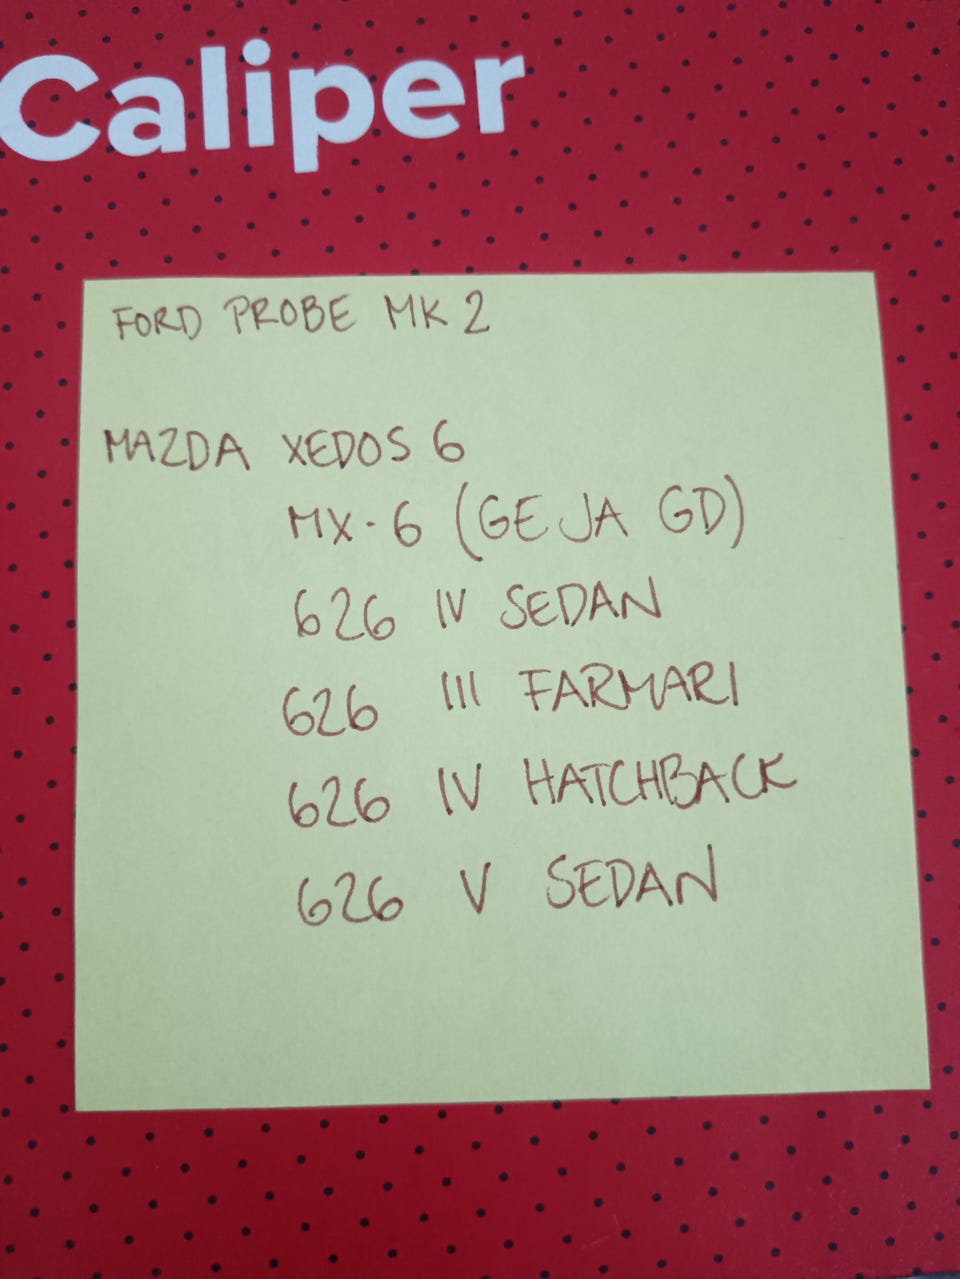 Caliper
FORD PROBE MK 2
MAZDA XEDOS 6
MX-6 (GE JA GD)
626 IV SEDAN
626 III FARMARI
626 IV HATCHBACK
626 V SEDAN